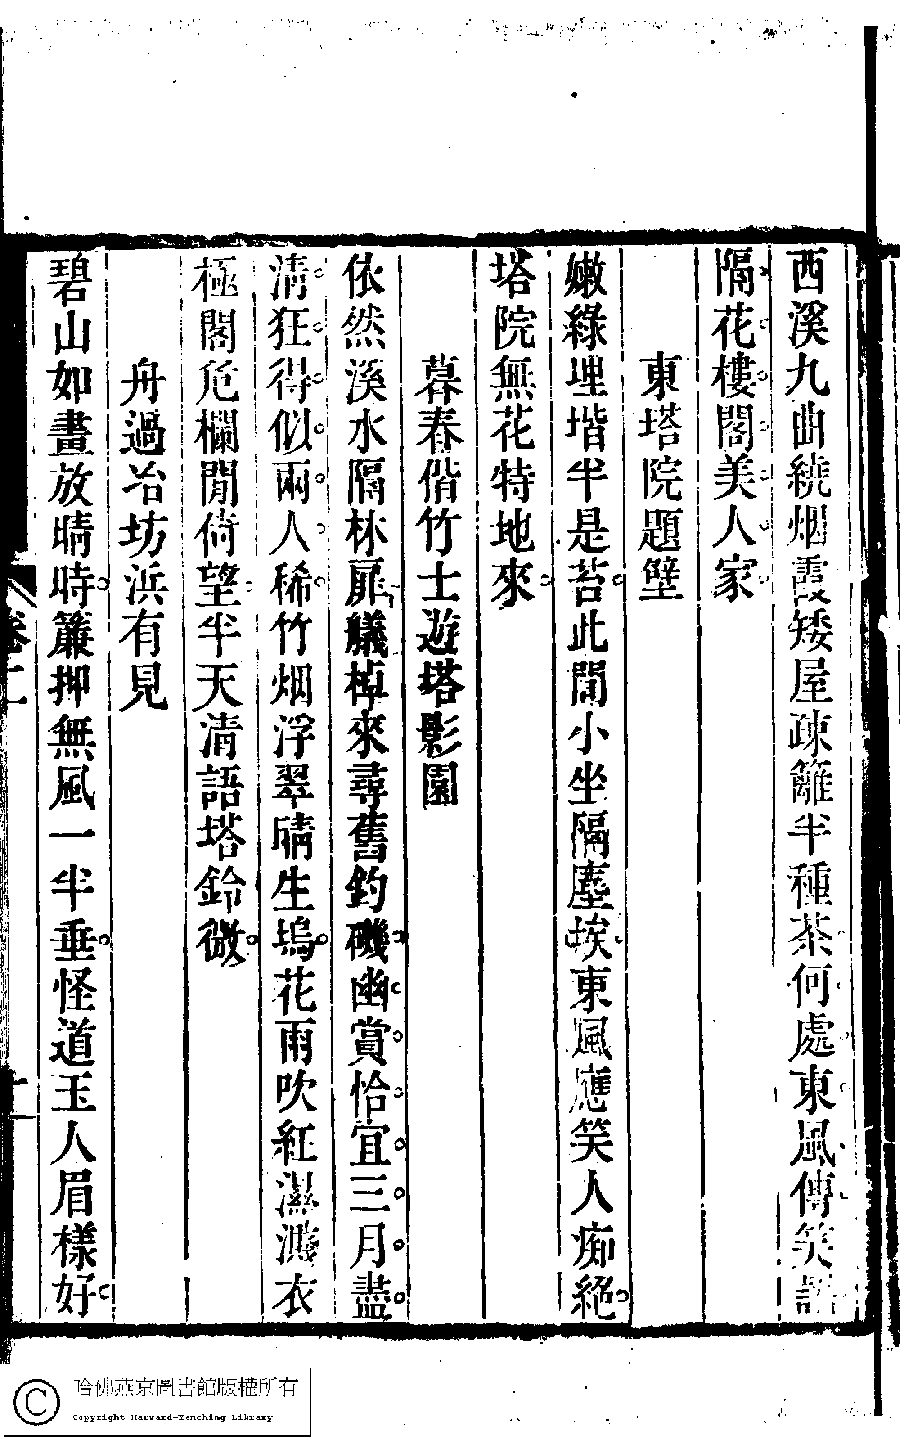 西溪九曲繞烟霞矮屋疎籬半種茶何處東風傳笑語
隔花樓閣美人家
東塔院題壁
嫩綠埋堦半是苔此間小坐隔塵埃東風應笑人痴絕
塔院無花特地來
暮春偕竹士遊塔影園
依然溪水隔林扉艤棹來尋舊釣磯幽賞恰宜三月盡
清狂得似兩人稀竹烟浮翠晴生塢花雨吹紅濕濺衣
極閣危欄閒倚望半天清語塔鈴微
舟過冶坊浜有見
碧山如畫放晴時簾押無風一半垂怪道玉人眉樣好
卷二
十一
哈佛燕京圖書館版權所有
Copyright Harvard-Yenching Library